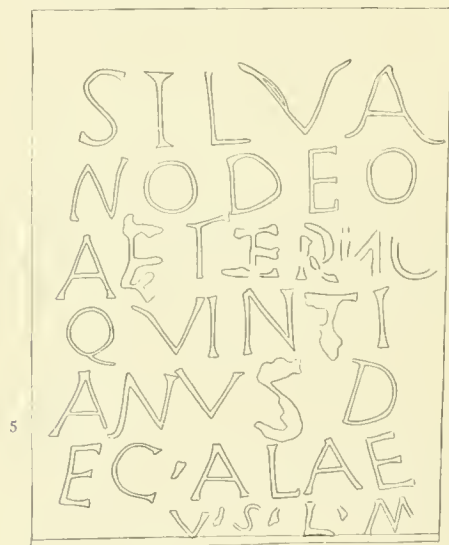 SILVA
NODEO
AETERNO
QVINTI
5 ANVS D
EC·ALAE
V·S·L·M